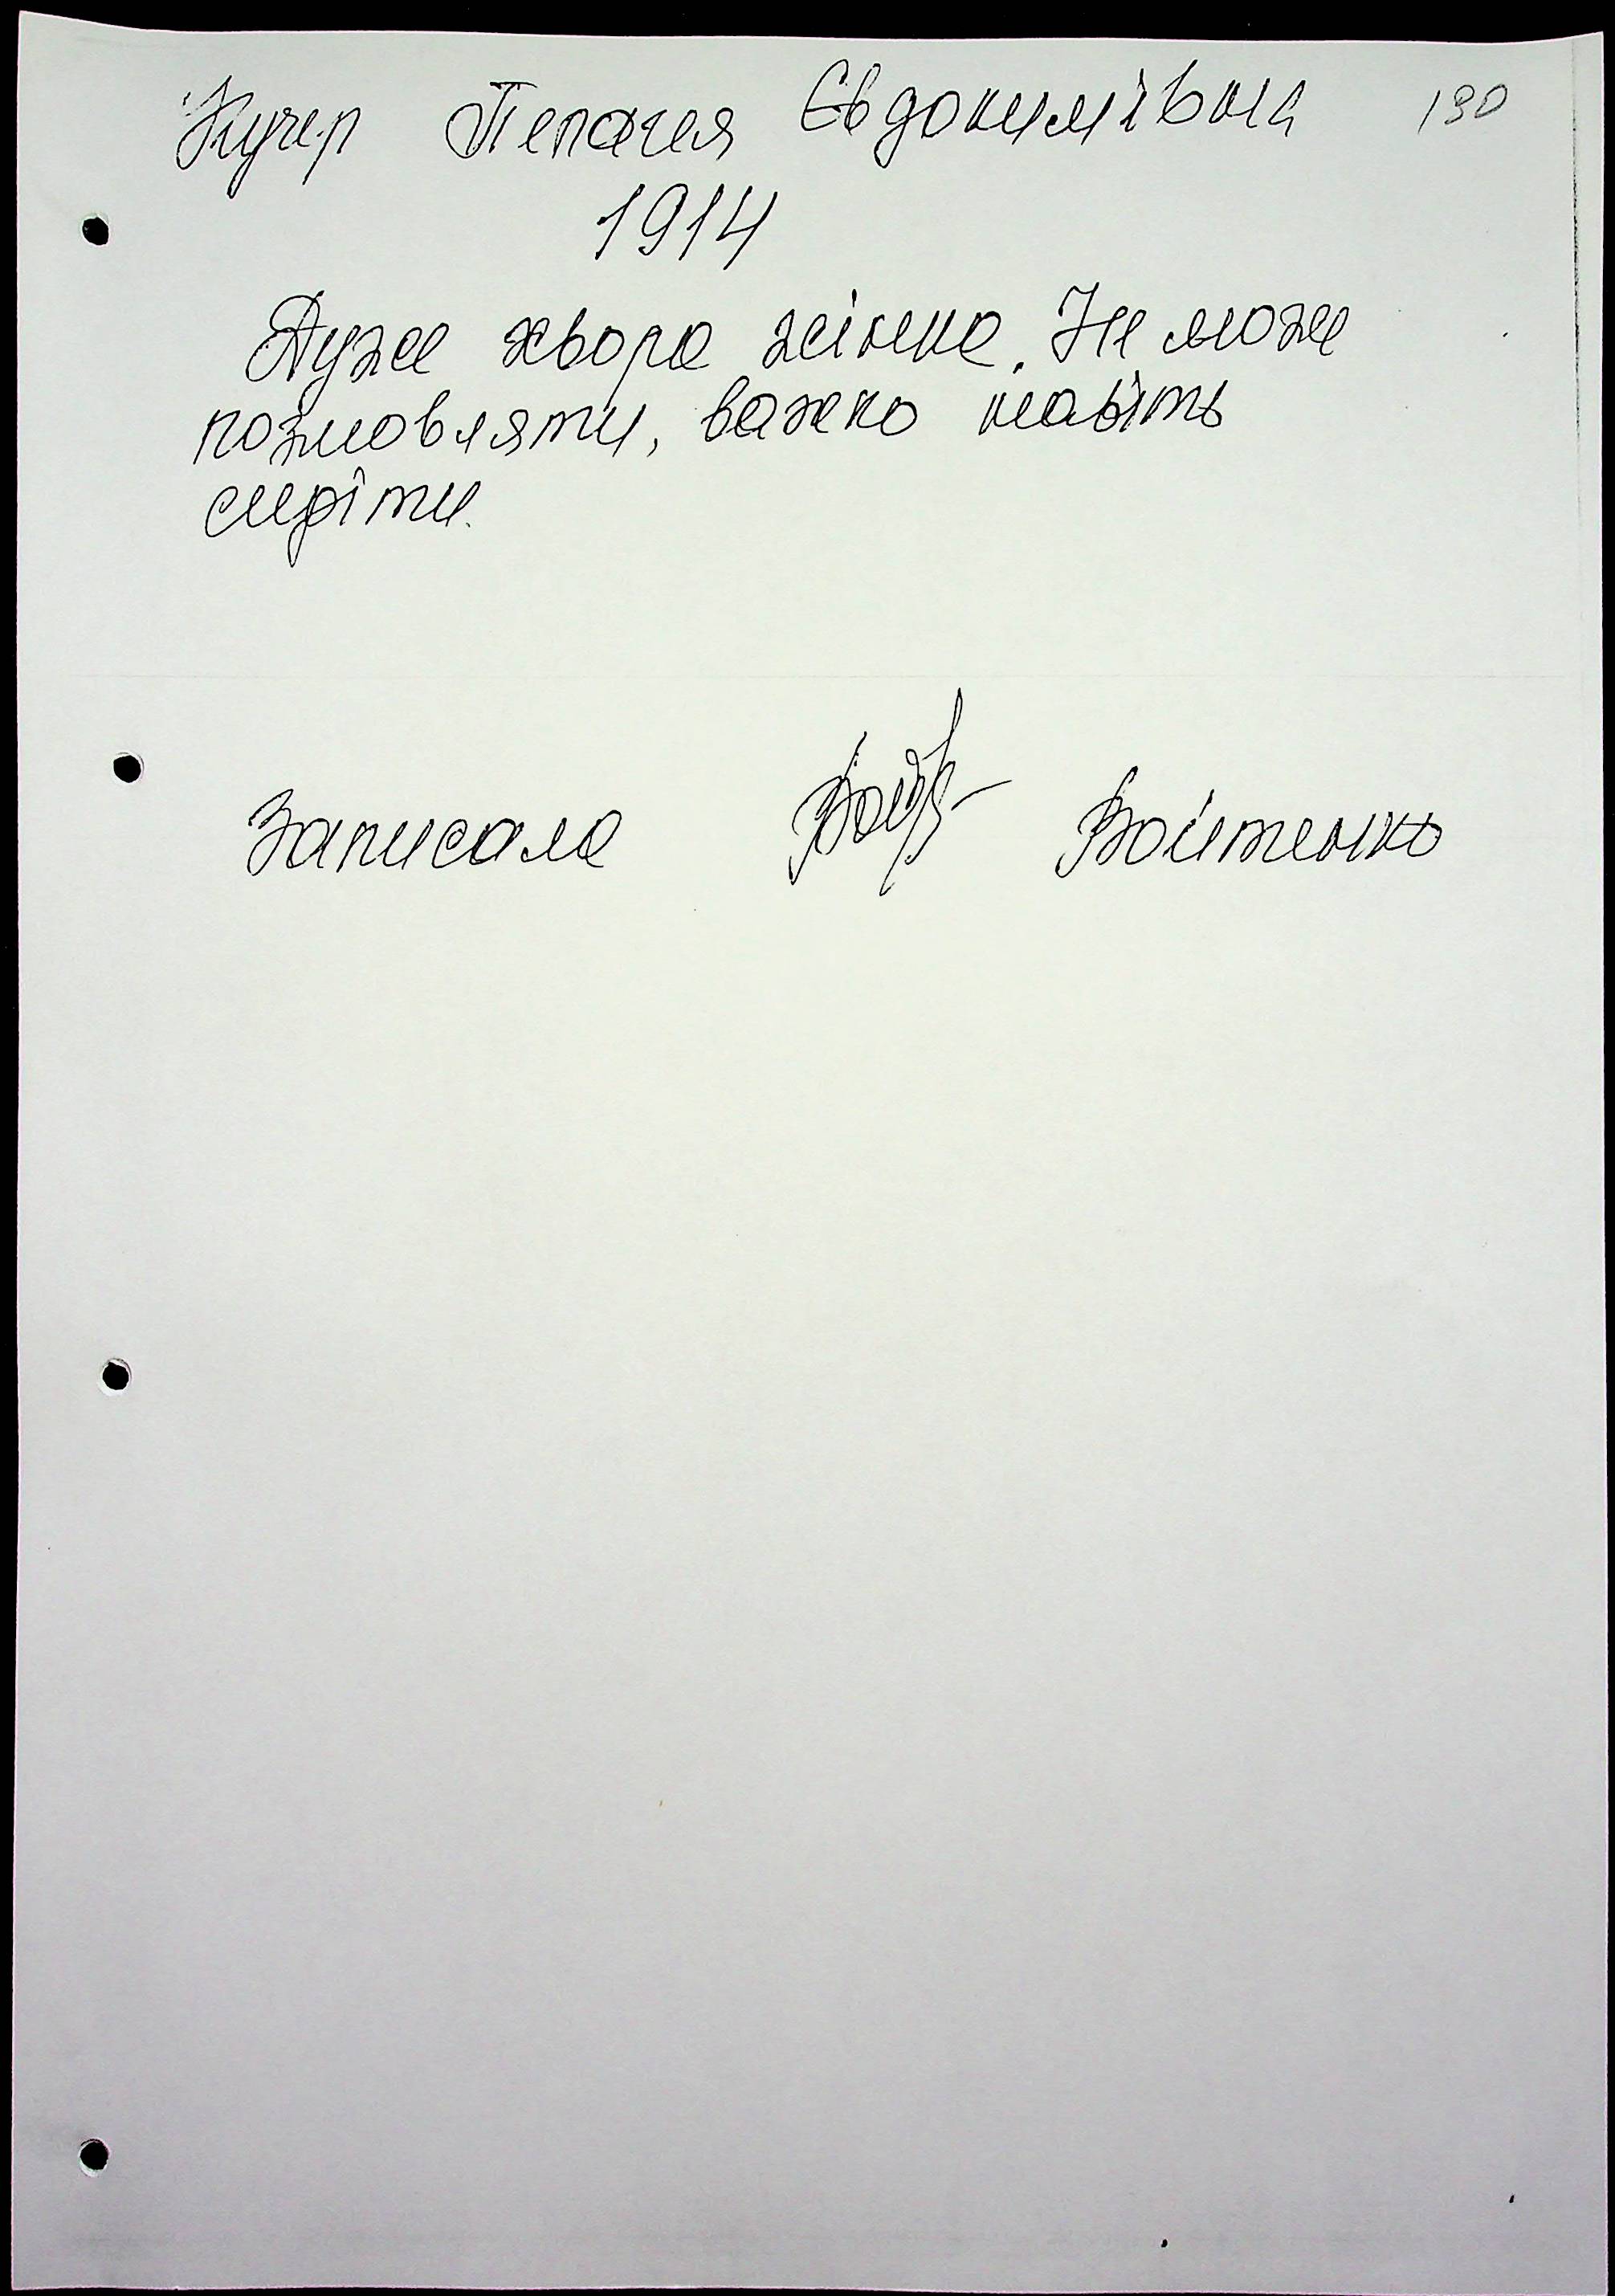 Кучер Пелагея Євдокимівна 190
1914
Дуже хвора жінка. Не може
розмовляти, важко навіть
сидіти.
Записала Войтенко